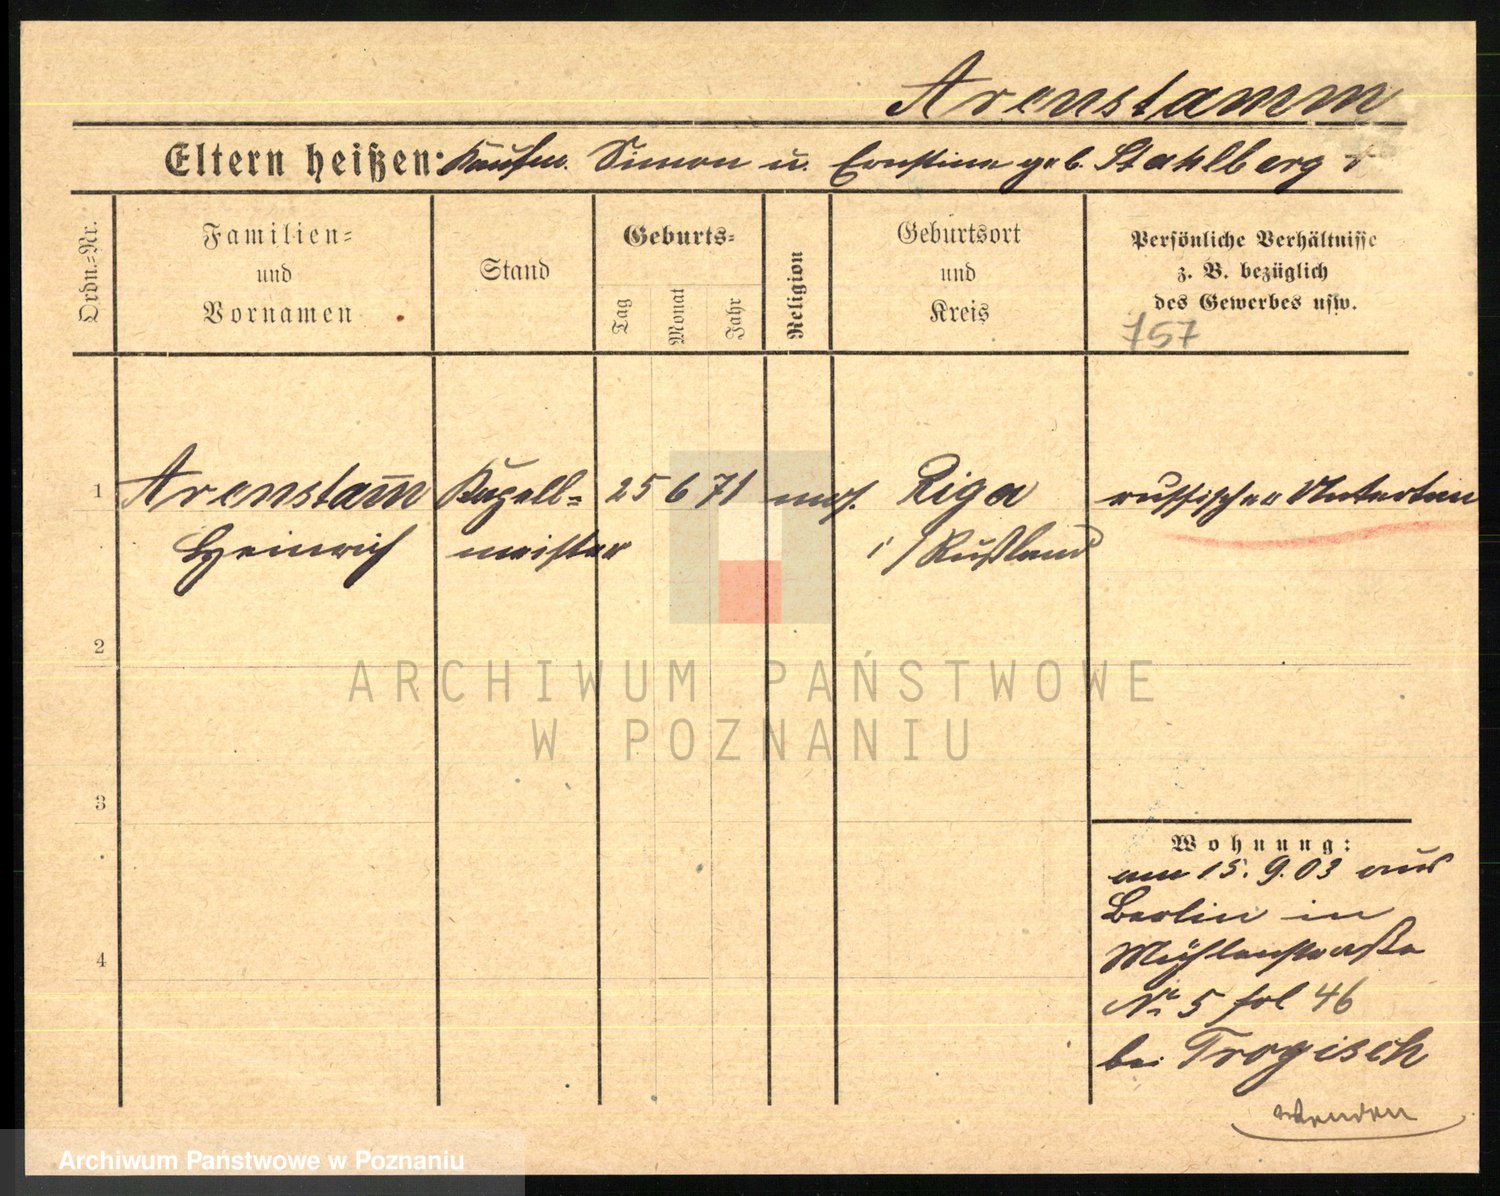 Arenstamm
Eltern heißen: Kaufm. Simon u. Ernstine geb. Stahlberg
Ordn.=Nr.
Familien=
und
Vornamen
Stand
Geburts=
Tag
Monat
Jahr
Religion
Geburtsort
und
Kreis
Persönliche Verhältnisse
z. B. bezüglich
des Gewerbes usw.
757
1 Arenstam̅ Kapell= 25 6 71 mos. Riga russischer Untertan
Heinrich meister i/Rußland
2
ARCHIWUM PAŃSTWOWE
W POZNANIU
3
Wohnung:
am 15. 9. 03 aus
Berlin in
Mühlenstraße
4
No 5 fol 46
bei Trogisch
wenden
Archiwum Państwowe w Poznaniu